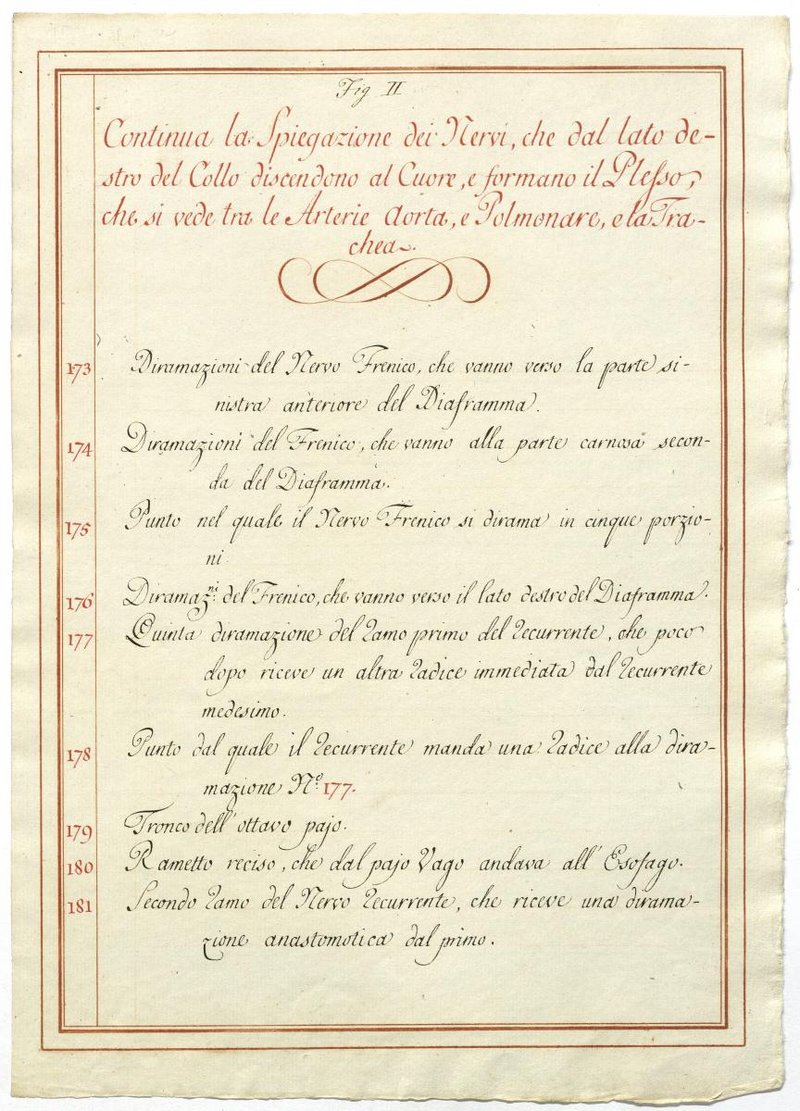 Fig II
Continua la Spiegazione dei Nervi, che dal lato de-
stro del Collo discendono al Cuore, e formano il Plesso,
che si vede tra le Arterie Aorta, e Polmonare, e la Tra-
chea.
173 Diramazioni del Nervo Frenico, che vanno verso la parte si-
nistra anteriore del Diaframma.
174 Diramazioni del Frenico, che vanno alla parte carnosa secon-
da del Diaframma.
175 Punto nel quale il Nervo Frenico si dirama in cinque porzio-
ni
176 Diramaz.ni del Frenico, che vanno verso il lato destro del Diaframma.
177 Quinta diramazione del ramo primo del recurrente, che poco
dopo riceve un altra radice immediata dal recurrente
medesimo.
178 Punto dal quale il recurrente manda una radice alla dira-
mazione N.o 177.
179 Tronco dell' ottavo pajo.
180 Rametto reciso, che dal pajo Vago andava all' Esofago.
181 Secondo ramo del Nervo recurrente, che riceve una dirama-
zione anastomotica dal primo.